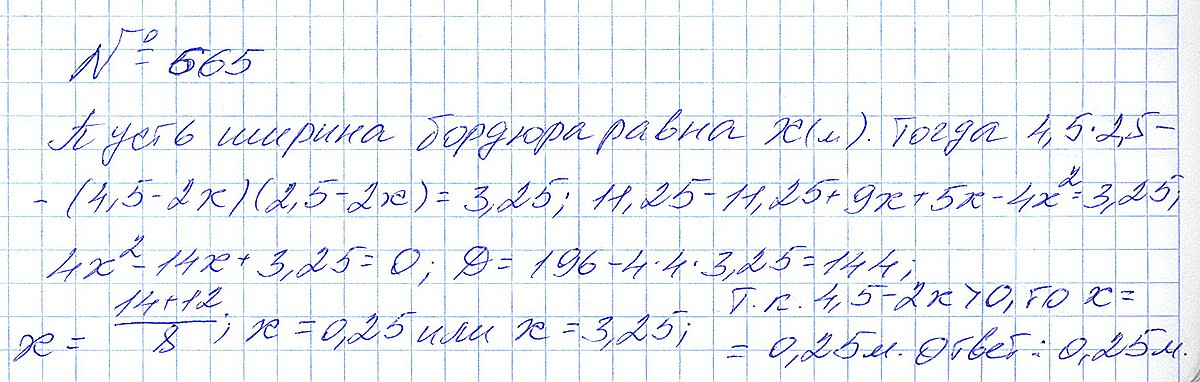 № 665
Пусть ширина бордюра равна x(м). Тогда 4,5·2,5-
-(4,5-2x)(2,5-2x)=3,25; 11,25-11,25+9x+5x-4x²=3,25;
4x²-14x+3,25=0; D=196-4·4·3,25=144;
x = (14+12)/8; x=0,25 или x=3,25;
т.к. 4,5-2x>0, то x=
=0,25м. Ответ: 0,25м.